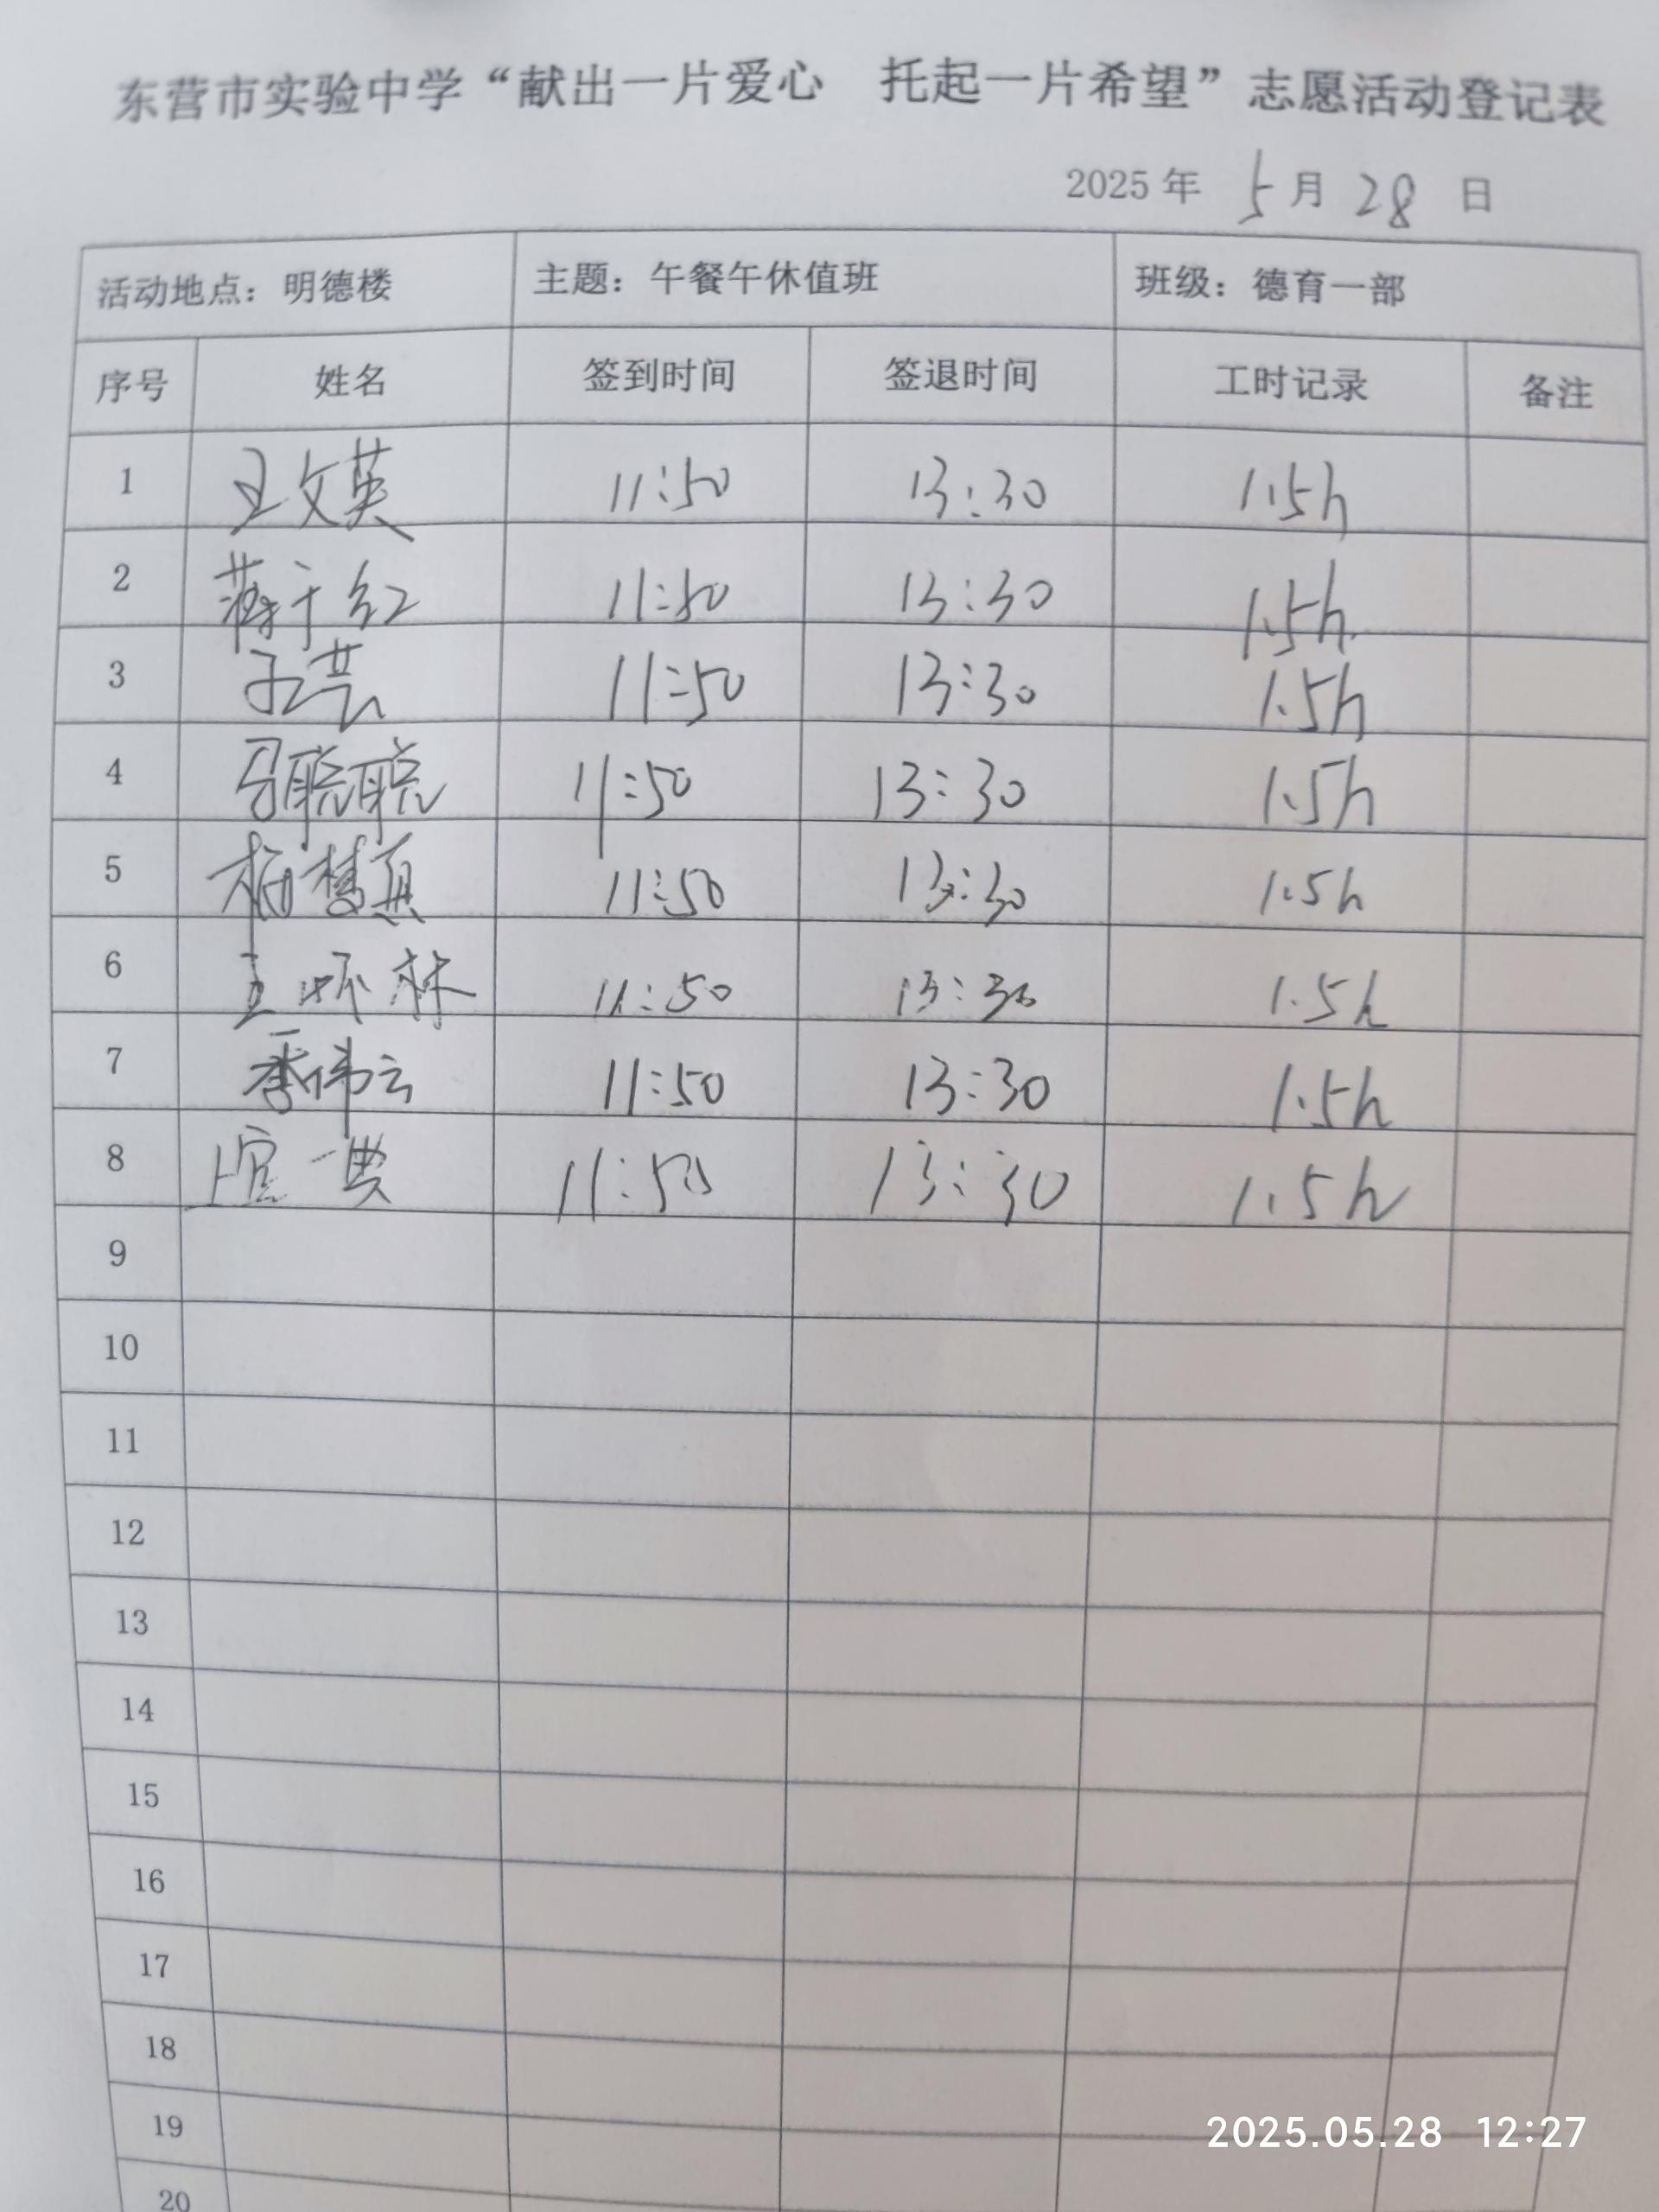 东营市实验中学“献出一片爱心 托起一片希望”志愿活动登记表
2025 年 5 月 28 日
活动地点：明德楼 主题：午餐午休值班 班级：德育一部
序号 姓名 签到时间 签退时间 工时记录 备注
1 王文英 11:50 13:30 1.5h
2 薛于红 11:50 13:30 1.5h
3 孟芸 11:50 13:30 1.5h
4 马聪聪 11:50 13:30 1.5h
5 杨梦真 11:50 13:30 1.5h
6 王怀林 11:50 13:30 1.5h
7 季伟云 11:50 13:30 1.5h
8 11:50 13:30 1.5h
9
10
11
12
13
14
15
16
17
18
19
20
2025.05.28 12:27